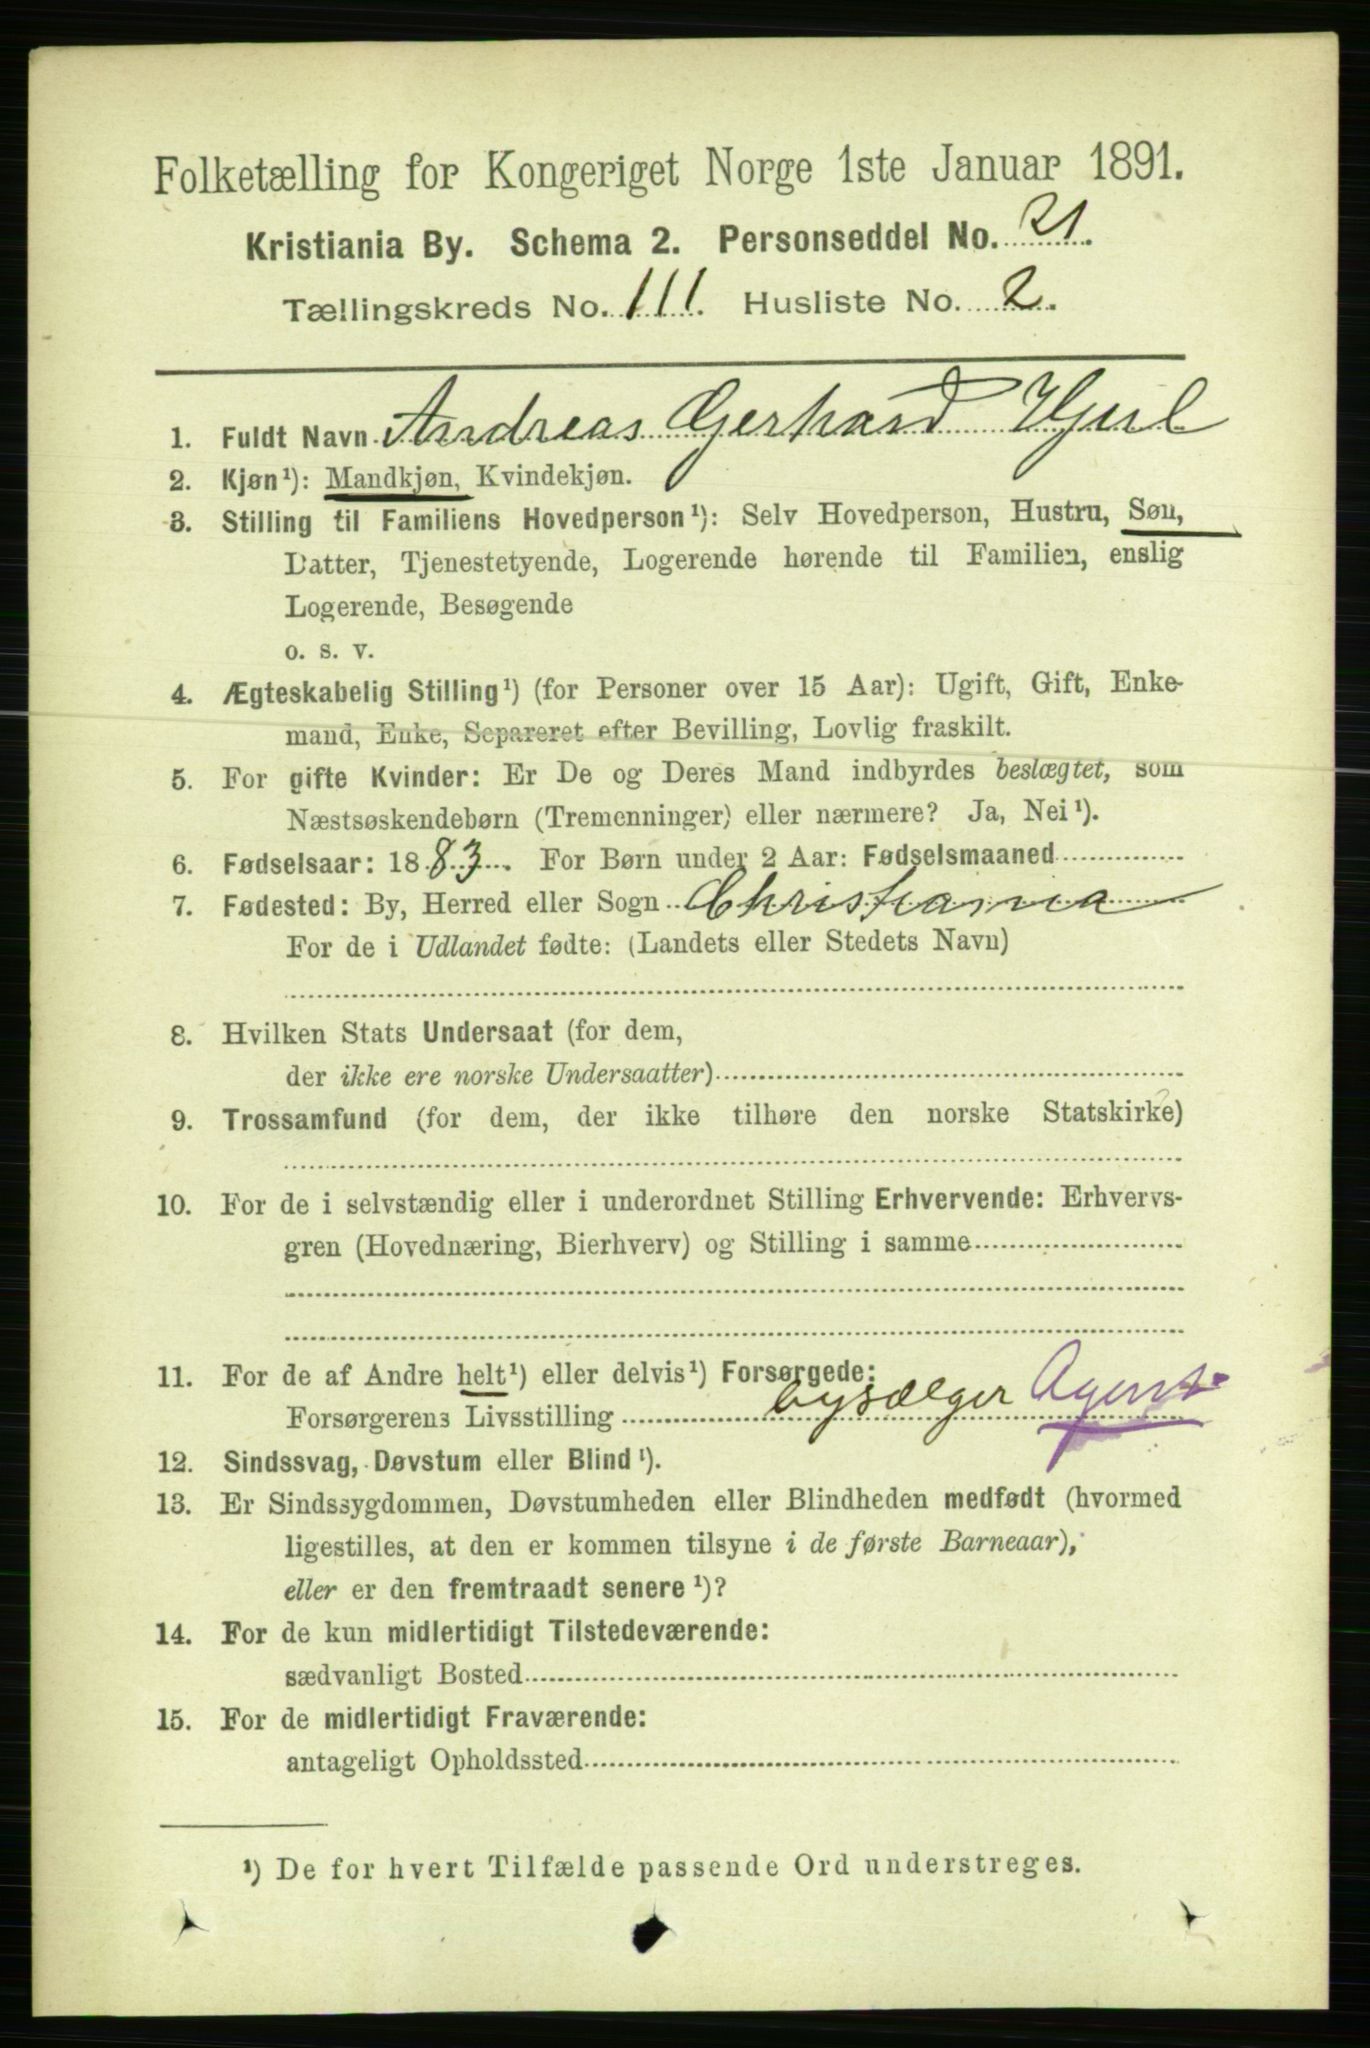 Folketælling for Kongeriget Norge 1ste Januar 1891.
Kristiania By. Schema 2. Personseddel No. 21.
Tællingskreds No. 111. Husliste No. 2.
1. Fuldt Navn Andreas Gerhard Hjul
2. Kjøn¹): Mandkjøn, Kvindekjøn.
3. Stilling til Familiens Hovedperson¹): Selv Hovedperson, Hustru, Søn,
Datter, Tjenestetyende, Logerende hørende til Familien, enslig
Logerende, Besøgende
o. s. v.
4. Ægteskabelig Stilling¹) (for Personer over 15 Aar): Ugift, Gift, Enke-
mand, Enke, Separeret efter Bevilling, Lovlig fraskilt.
5. For gifte Kvinder: Er De og Deres Mand indbyrdes beslægtet, som
Næstsøskendebørn (Tremenninger) eller nærmere? Ja, Nei¹).
6. Fødselsaar: 1883. For Børn under 2 Aar: Fødselsmaaned
7. Fødested: By, Herred eller Sogn Christiania
For de i Udlandet fødte: (Landets eller Stedets Navn)
8. Hvilken Stats Undersaat (for dem,
der ikke ere norske Undersaatter)
9. Trossamfund (for dem, der ikke tilhøre den norske Statskirke)
10. For de i selvstændig eller i underordnet Stilling Erhvervende: Erhvervs-
gren (Hovednæring, Bierhverv) og Stilling i samme
11. For de af Andre helt¹) eller delvis¹) Forsørgede:
Forsørgerens Livsstilling bysælger Agent
12. Sindssvag, Døvstum eller Blind¹).
13. Er Sindssygdommen, Døvstumheden eller Blindheden medfødt (hvormed
ligestilles, at den er kommen tilsyne i de første Barneaar),
eller er den fremtraadt senere¹)?
14. For de kun midlertidigt Tilstedeværende:
sædvanligt Bosted
15. For de midlertidigt Fraværende:
antageligt Opholdssted
¹) De for hvert Tilfælde passende Ord understreges.